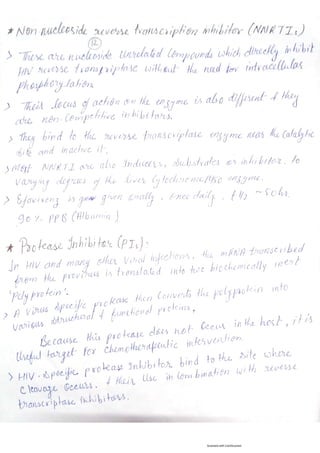 * Non nucleoside reverse transcription inhibitor (NNRTIs)
12
> These are nucleoside unrelated compounds which directly inhibit
HIV reverse transcriptase without the need for intracellular
phosphorylation.
> Their locus of action on the enzyme is also different & they
are non-competitive inhibitors.
> They bind to the reverse transcriptase enzyme near the catalytic
site and inactive it.
> Most NNRTI are also inducers, substrates or inhibitor, to
varying degrees of the liver Cytochrome P450 enzyme.
> Efavirenz is given orally. Once daily, t1/2 ~ 50hr.
90% PPB (Albumin)
* Protease Inhibitor (PIs):
In HIV and many other viral infections, the mRNA transcribed
from the provirus is translated into two biochemically inert
'Polyprotein'.
> A virus specific protease then converts the polyprotein into
various structural & functional protein,
Because this protease does not occur in the host, it is
useful target for chemotherapeutic intervention
> HIV-specific protease Inhibitor bind to the site where
cleavage occurs. & their use in combination with reverse
transcriptase inhibitors.
Scanned with CamScanner